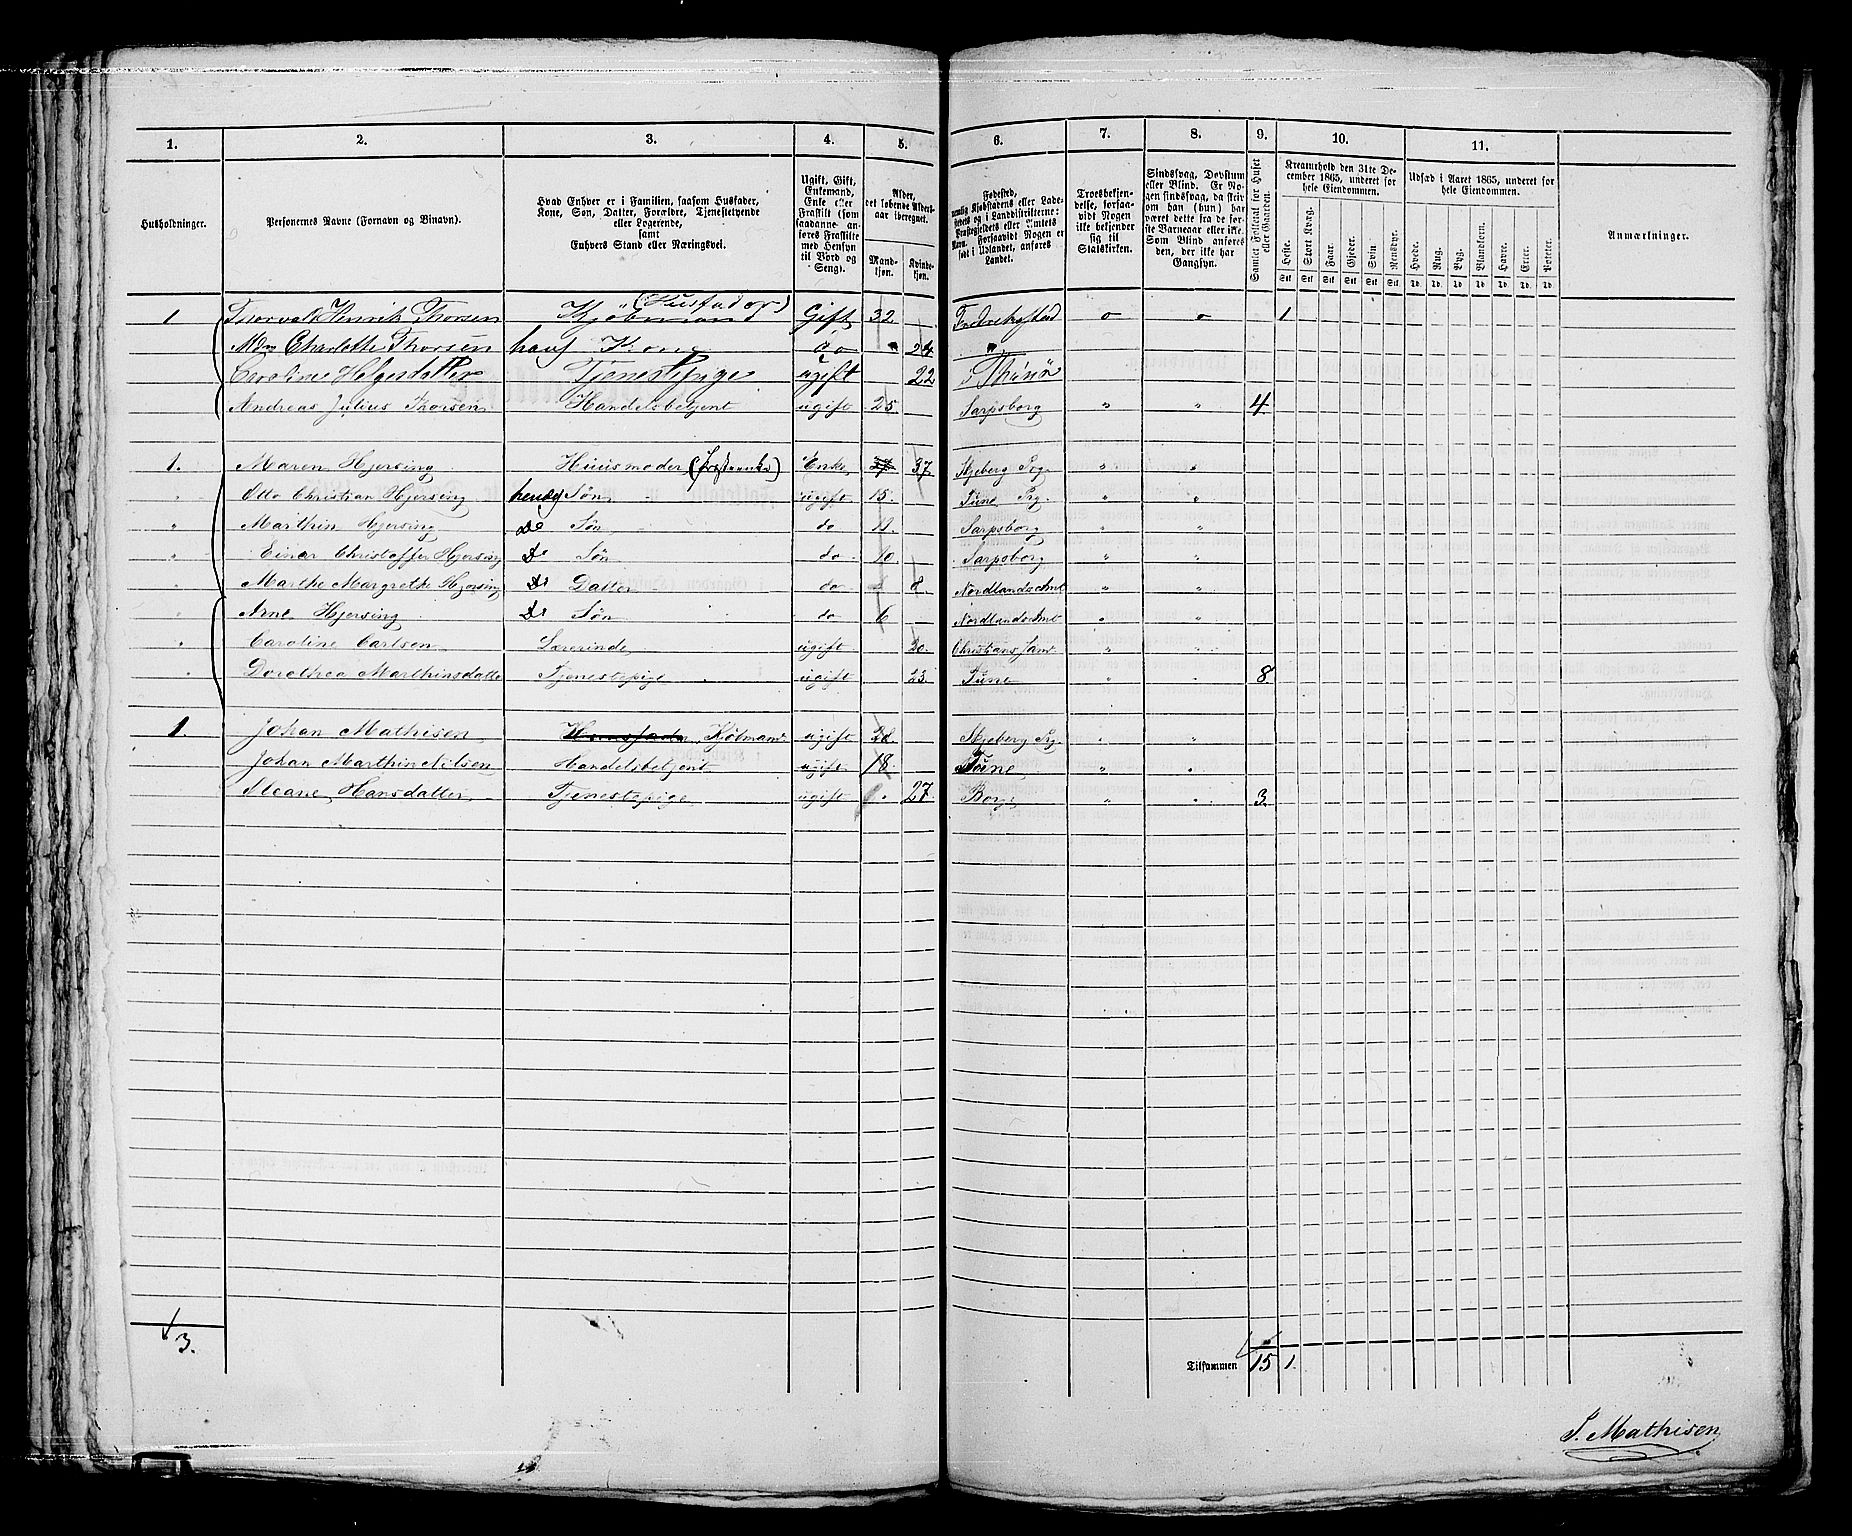 1. 2. 3. 4. 5. 6. 7. 8. 9. 10. 11.
Husholdninger.
Personernes Navne (Fornavn og Binavn).
Hvad Enhver er i Familien, saasom Husfader,
Kone, Søn, Datter, Forældre, Tjenestetyende
eller Logerende,
samt
Enhvers Stand eller Næringsvei.
Ugift, Gift,
Enkemand,
Enke eller
Fraskilt (som
saadanne an-
føres Fraskilte
med Hensyn
til Bord og
Seng).
Alder,
det løbende Alders-
aar iberegnet.
Mand-
kjøn.
Kvinde-
kjøn.
Fødested,
nemlig Kjøbstadens eller Lade-
stedets og i Landdistrikterne:
Præstegjeldets eller Amtets
Navn. Forsaavidt Nogen er
født i Udlandet, anføres
Landet.
Troesbekjen-
delse, forsaa-
vidt Nogen
ikke bekjender
sig til
Statskirken.
Sindssvag, Døvstum
eller Blind. Er No-
gen sindssvag, da skriv
om han (hun) har
været dette fra de før-
ste Barneaar eller ikke.
Som Blind anføres
den, der ikke har
Gangsyn.
Samlet Folketal for Huset
eller Gaarden.
Kreaturhold den 31te De-
cember 1865, underet for
hele Eiendommen.
Heste. Stort Kvæg. Faar. Gjeder. Svin Rensdyr.
Stk Stk Stk Stk Stk Stk
Udsæd i Aaret 1865, underet for
hele Eiendommen.
Hvede. Rug. Byg. Blandkorn. Havre. Erter. Poteter.
Td. Td. Td. Td. Td. Td. Td.
Anmærkninger.
1 Thorvald Henrik Thorsen Kjøbmand (Husfader) Gift 32 Fredrikstad o o 1
Mdm Charlotte Thorsen hans Kone do " 24 "
Caroline Helgesdatter Tjenestepige ugift 22
Andreas Julius Thorsen Handelsbetjent ugift 25. Sarpsborg " " 4
1. Maren Hjersing Huusmoder Enke 37 Skjeberg Prg. " "
" Otto Christian Hjersing hendes Søn ugift 15. Tune Prg. " "
" Marthin Hjersing do Søn do Sarpsborg " "
" Einar Christoffer Hjersing do Søn do 10 Sarpsborg " "
" Marthe Margrethe Hjersing do Datter do 8. Nordlands Amt " "
" Arne Hjersing do Søn do 6 Nordlands Amt " "
" Caroline Carlsen Lærerinde ugift 20. " "
" Dorothea Marthinsdatter Tjenestepige ugift 23. Tune " " 8
1. Johan Mathisen Huusfader, Kjøbmand ugift 28. Skjeberg Prg. " "
Johan Marthin Nilsen Handelsbetjent ugift 18. Tune " "
Hansdatter Tjenestepige ugift " 27. Borge " " 3.
3.
Tilsammen 15 1.
J. Mathisen